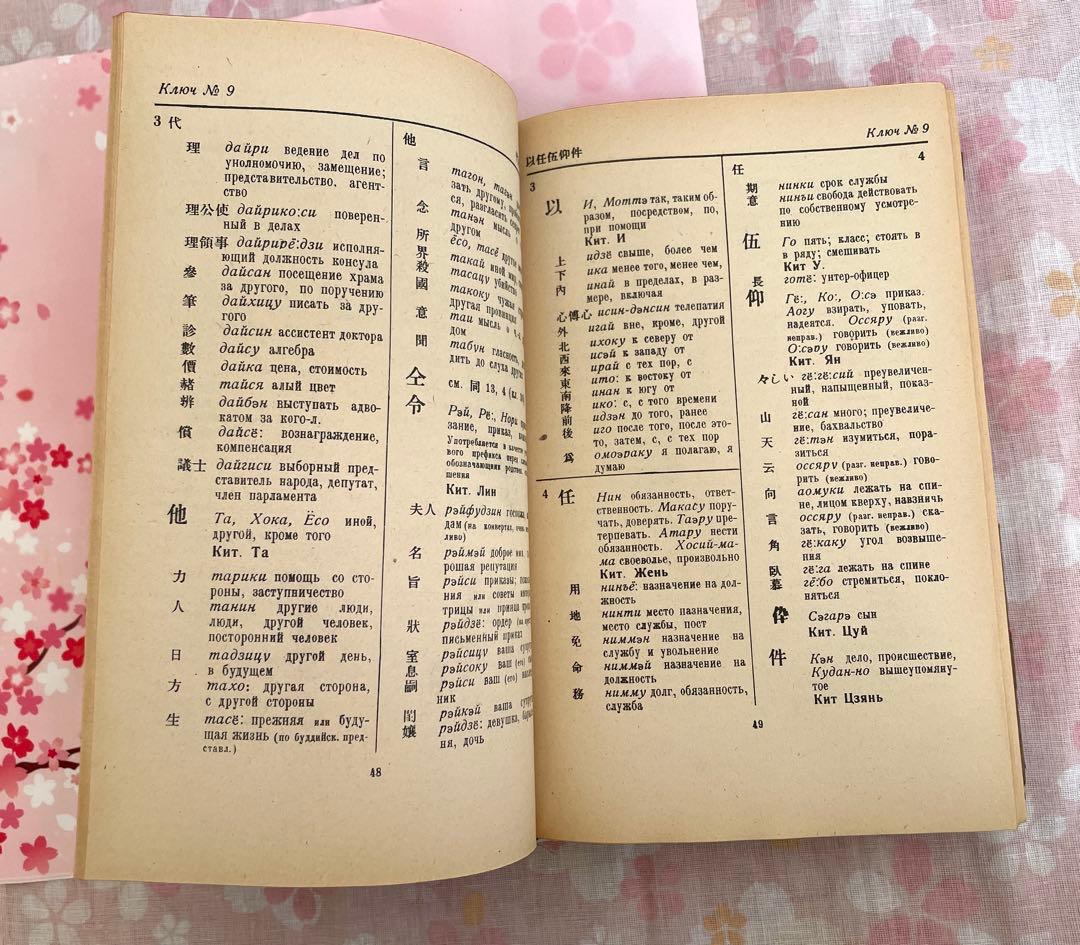 Ключ № 9
3 代
理 дайри ведение дел по
унолномочию, замещение;
представительство, агент-
ство
理公使 дайрико:си поверен-
ный в делах
理領事 дайрирё:дзи исполня-
ющий должность консула
參 дайсан посещение храма
за другого, по поручению
筆 дайхицу писать за дру-
гого
診 дайсин ассистент доктора
數 дайсу алгебра
價 дайка цена, стоимость
赭 тайся алый цвет
辨 дайбэн выступать адво-
катом за кого-л.
償 дайсё: вознаграждение,
компенсация
議士 дайгиси выборный пред-
ставитель народа, депутат,
член парламента
他 Та, Хока, Ёсо иной,
другой, кроме того
Кит. Та
力 тарики помощь со сто-
роны, заступничество
人 танин другие люди,
люди, другой человек,
посторонний человек
日 тадзицу другой день,
в будущем
方 тахо: другая сторона,
с другой стороны
生 тасё: прежняя или буду-
щая жизнь (по буддийск. пред-
ставл.)
他
言 тагон,
зать другому,
ся, разгласить
念 танэн мысль о
другом
所 ёсо, тасё другое
界 такай иной мир,
殺 тасацу убийство
國 такоку чужая
другая провинция
意 таи мысль о ч.-л.
дом
聞 табун гласность,
дить до слуха других
仝 см. 同 13, 4
令 Рэй, Рё:, Нори
зание, приказ,
Употребляется в качестве
вого префикса перед
обозначающими родствен.
шения
Кит. Лин
夫人 рэйфудзин госпожа,
дам (на конвертах, очень
ливо)
名 рэймэй доброе имя,
рошая репутация
旨 рэйси приказы;
ния или советы
трицы или принца
狀 рэйдзё: ордер
письменный приказ
室 рэйсицу ваша
息 рэйсоку ваш (его)
嗣 рэйси ваш (его)
ник
閨 рэйкэй ваша
嬢 рэйдзё: девушка,
ня, дочь
48
以任伍仰件
Ключ № 9
3
以 И, Моттэ так, таким об-
разом, посредством, по,
при помощи
Кит. И
上 идзё свыше, более чем
下 ика менее того, менее чем,
內 инай в пределах, в раз-
мере, включая
心傳心 исин-дэнсин телепатия
外 игай вне, кроме, другой
北 ихоку к северу от
西 исэй к западу от
來 ирай с тех пор, с
東 ито: к востоку от
南 инан к югу от
降 ико: с, с того времени
前 идзэн до того, ранее
後 иго после того, после это-
то, затем, с, с тех пор
爲 омоэраку я полагаю, я
думаю
4 任 Нин обязанность, ответ-
ственность. Макасу пору-
чать, доверять. Таэру пре-
терпевать. Атару нести
обязанность. Хосий-ма-
ма своеволье, произвольно
Кит. Жень
用 нинъё: назначение на дол-
жность
地 нинти место назначения,
место службы, пост
免 ниммэн назначение на
службу и увольнение
命 ниммэй назначение на
должность
務 нимму долг, обязанность,
служба
4
任
期 нинки срок службы
意 нинъи свобода действовать
по собственному усмотре-
нию
伍 Го пять; класс; стоять в
в ряду; смешивать
Кит У.
長 готё: унтер-офицер
仰 Гё:, Ко:, О:сэ приказ.
Аогу взирать, уповать,
надеятся. Оссяру (разг.
неправ.) говорить (вежливо)
О:сэру говорить (вежливо)
Кит. Ян
々しい гё:гё:сий преувеличен-
ный, напыщенный, показ-
ной
山 гё:сан много; преувеличе-
ние, бахвальство
天 гё:тэн изумиться, пора-
зиться
云 оссяру (разг. неправ.) гово-
рить (вежливо)
向 аомуки лежать на спи-
не, лицом кверху, навзничь
言 оссяру (разг. неправ.) ска-
зать, говорить (вежливо)
角 гё:каку угол возвыше-
ния
臥 гё:га лежать на спине
慕 гё:бо стремиться, покло-
няться
伜 Сэгарэ сын
Кит. Цуй
件 Кэн дело, происшествие,
Кудан-но вышеупомяну-
тое
Кит Цзянь
49